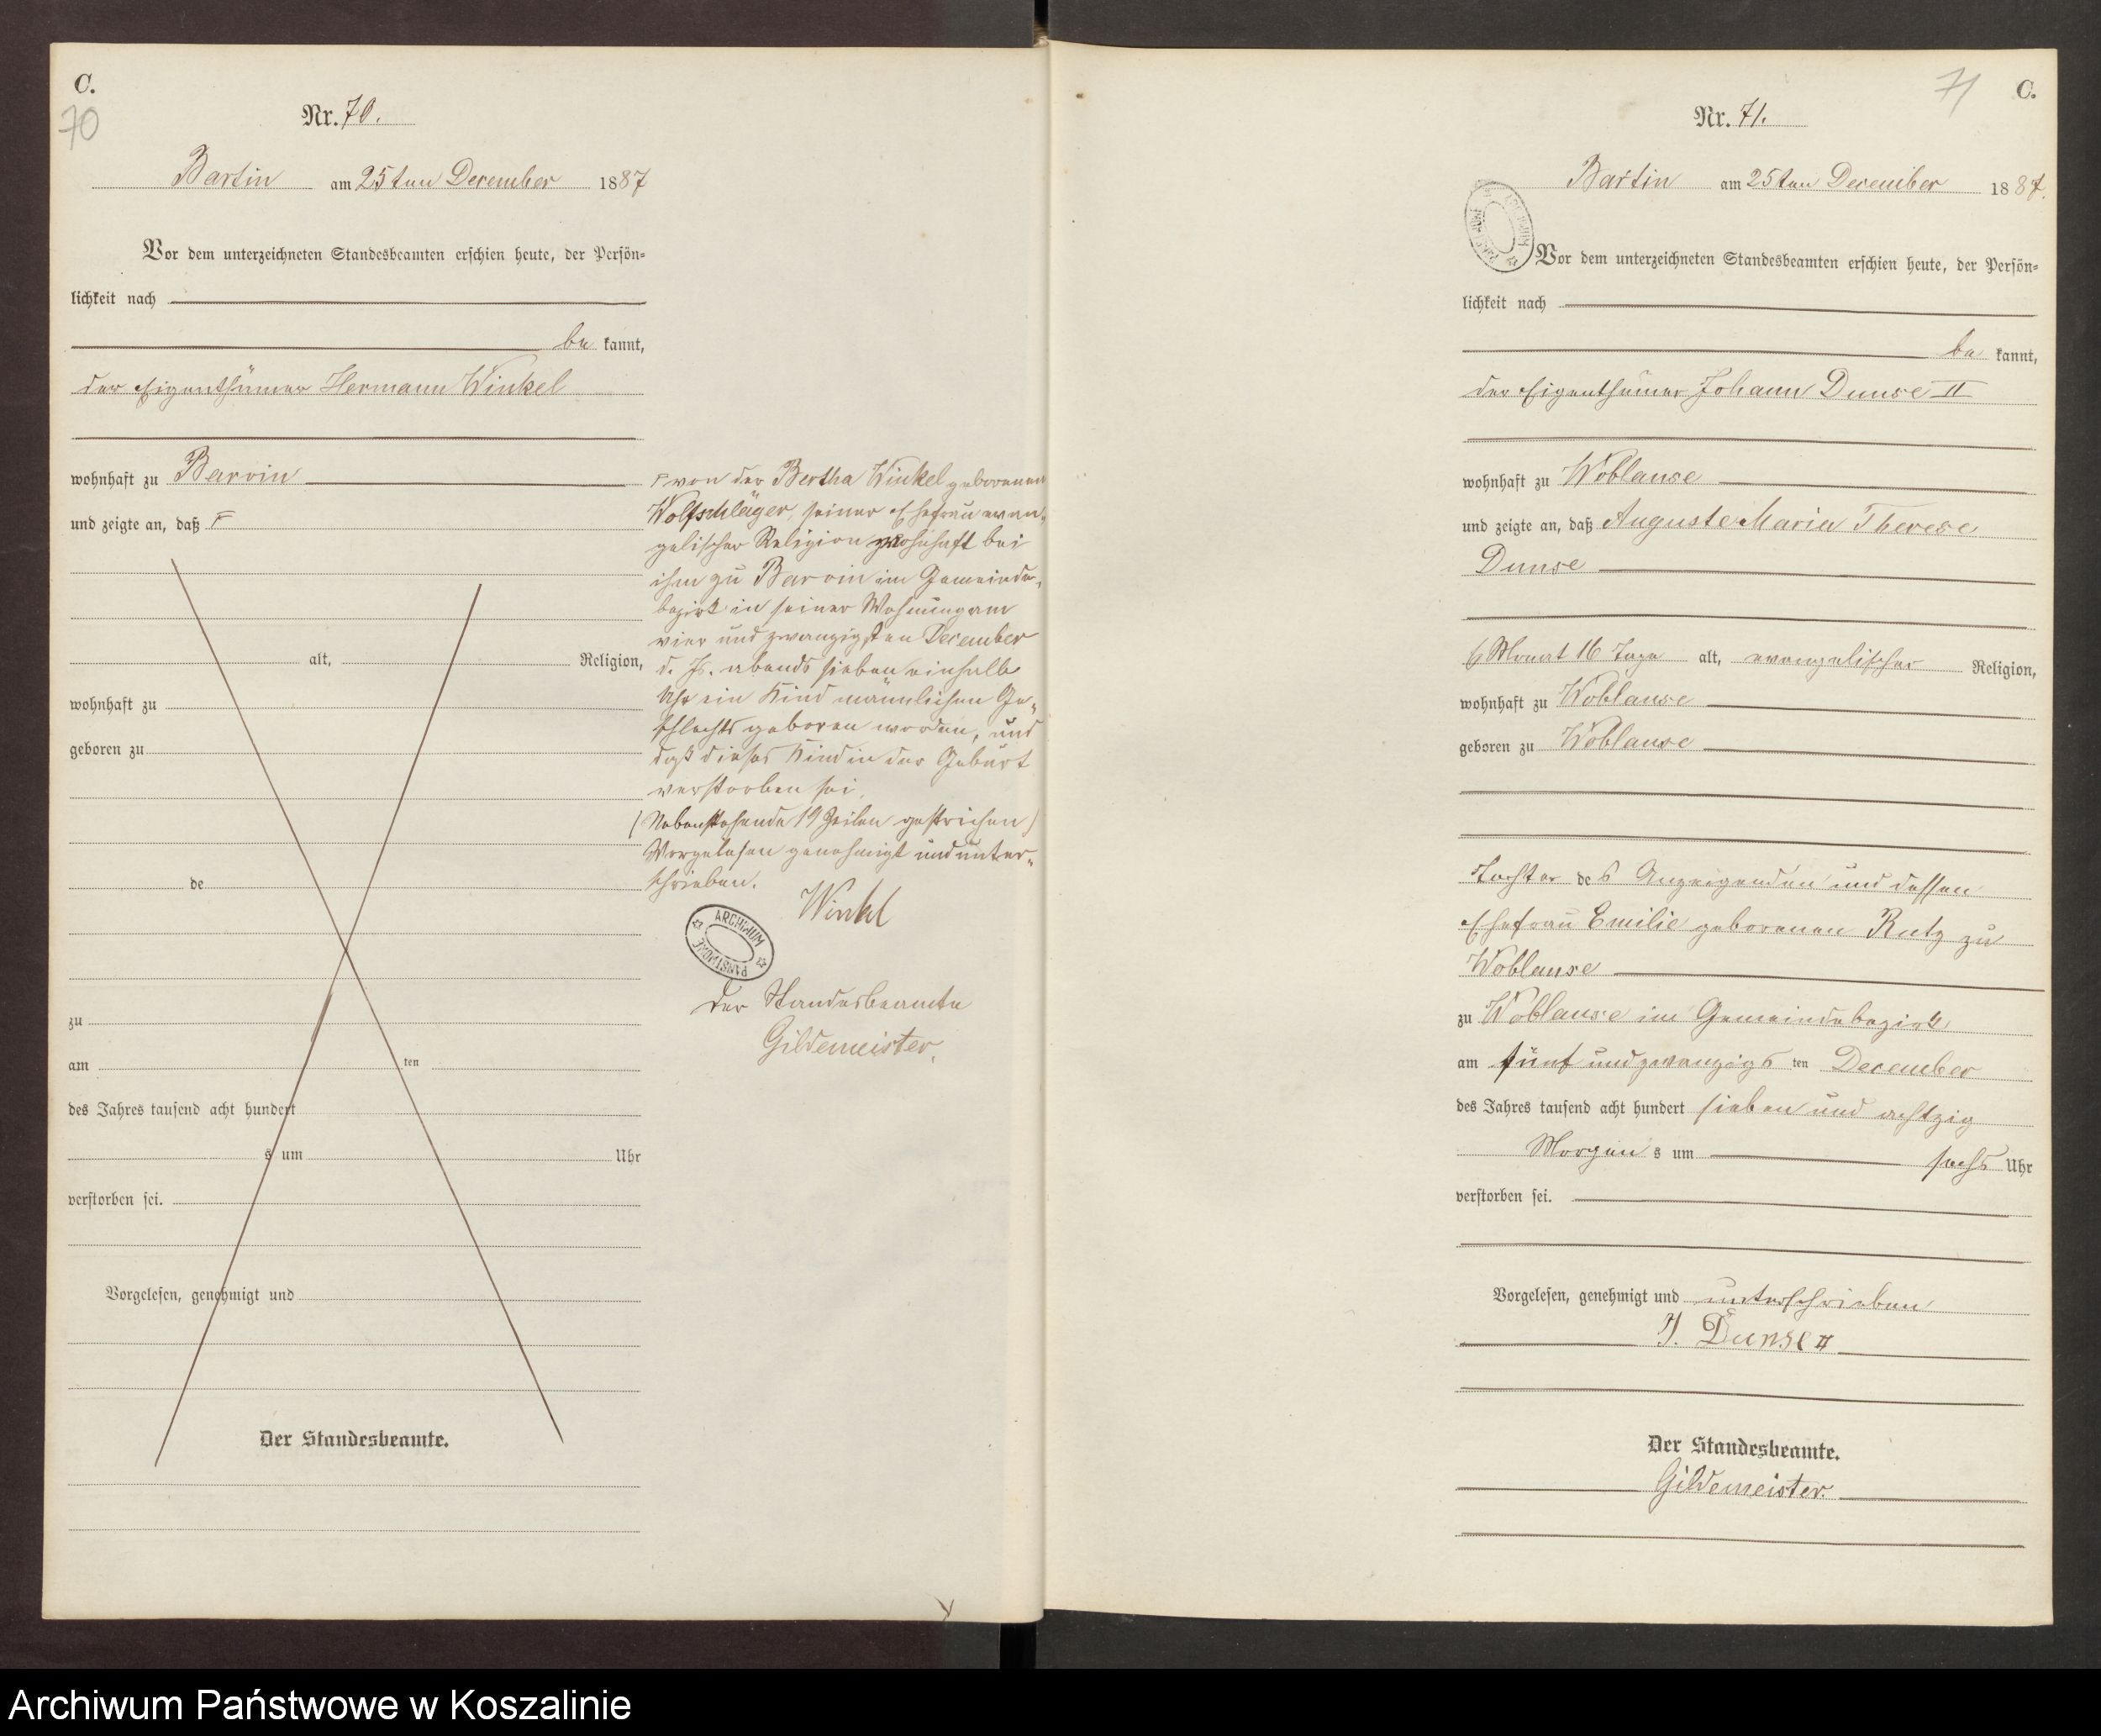 C.
70
Nr. 70.
Bartin am 25ten December 1887
Vor dem unterzeichneten Standesbeamten erschien heute, der Persön-
lichkeit nach
be kannt,
der Eigenthümer Hermann Winkel
wohnhaft zu Barvin
und zeigte an, daß
alt, Religion,
wohnhaft zu
geboren zu
de
zu
am ten
des Jahres tausend acht hundert
s um Uhr
verstorben sei.
Vorgelesen, genehmigt und
Der Standesbeamte.
von der Bertha Winkel geborenen
Wolfschläger, seiner Ehefrau evan-
gelischer Religion wohnhaft bei
ihm zu Barvin im Gemeinde-
bezirk in seiner Wohnung am
vier und zwanzigsten December
d. Js. abends sieben einhalb
Uhr ein Kind männlichen Ge-
schlechts geboren worden, und
daß dieses Kind in der Geburt
verstorben sei.
(Nebenstehende 19 Zeilen gestrichen)
Vorgelesen genehmigt und unter-
schrieben.
Winkel
ARCHIWUM PAŃSTWOWE
Der Standesbeamte
Gildemeister.
71
C.
Nr. 71.
Bartin am 25ten December 1887.
Vor dem unterzeichneten Standesbeamten erschien heute, der Persön-
lichkeit nach
be kannt,
der Eigenthümer Johann Dunse II
wohnhaft zu Woblanse
und zeigte an, daß Auguste Maria Therese
Dunse
6 Monat 16 Tage alt, evangelischer Religion,
wohnhaft zu Woblanse
geboren zu Woblanse
Tochter des Anzeigenden und dessen
Ehefrau Emilie geborenen Rutz zu
Woblanse
zu Woblanse im Gemeindebezirk
am fünf und zwanzigsten December
des Jahres tausend acht hundert sieben und achtzig
Morgens um sechs Uhr
verstorben sei.
Vorgelesen, genehmigt und unterschrieben
J. Dunse II
Der Standesbeamte.
Gildemeister.
Archiwum Państwowe w Koszalinie